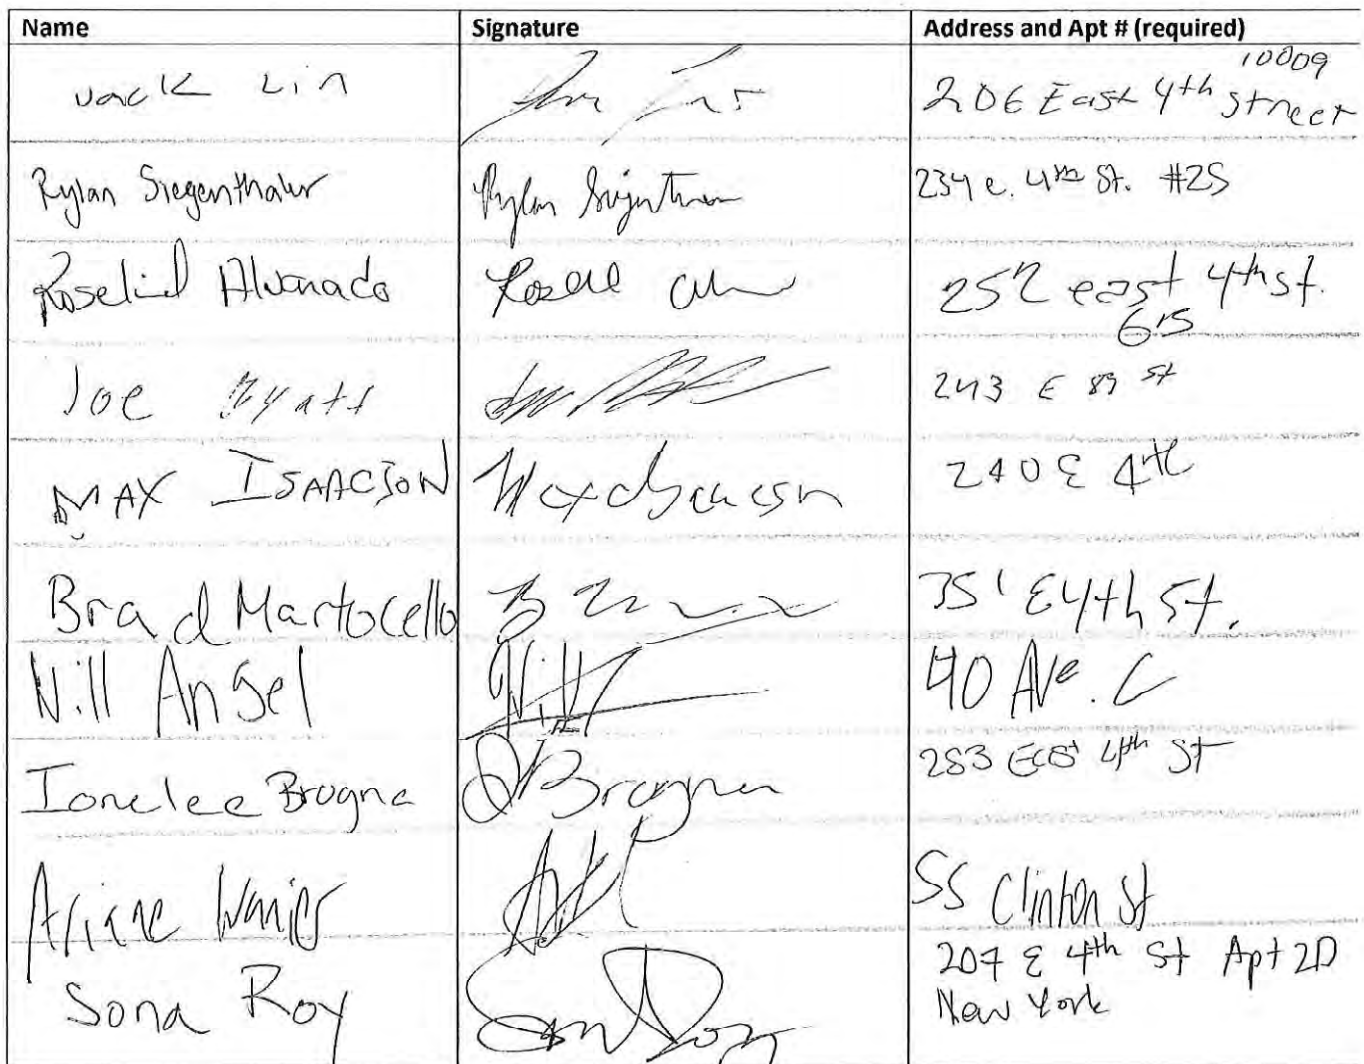 Name Signature Address and Apt # (required)
Jack Lin 10009
206 East 4th Street
Rylan Siegenthaler Rylan 234 e. 4th St. #2S
Roselind Alvarado 252 east 4th st.
Joe 243 E 89 st
MAX ISAACSON Max Isaacson 240 E 4th
Brad Martocello 351 E 4th St.
Will Angel Will 40 Ave. C
Ionelee Brogna Brogna 283 East 4th St
Ariane 55 Clinton St
Sona Roy Roy 207 E 4th St Apt 2D
New York